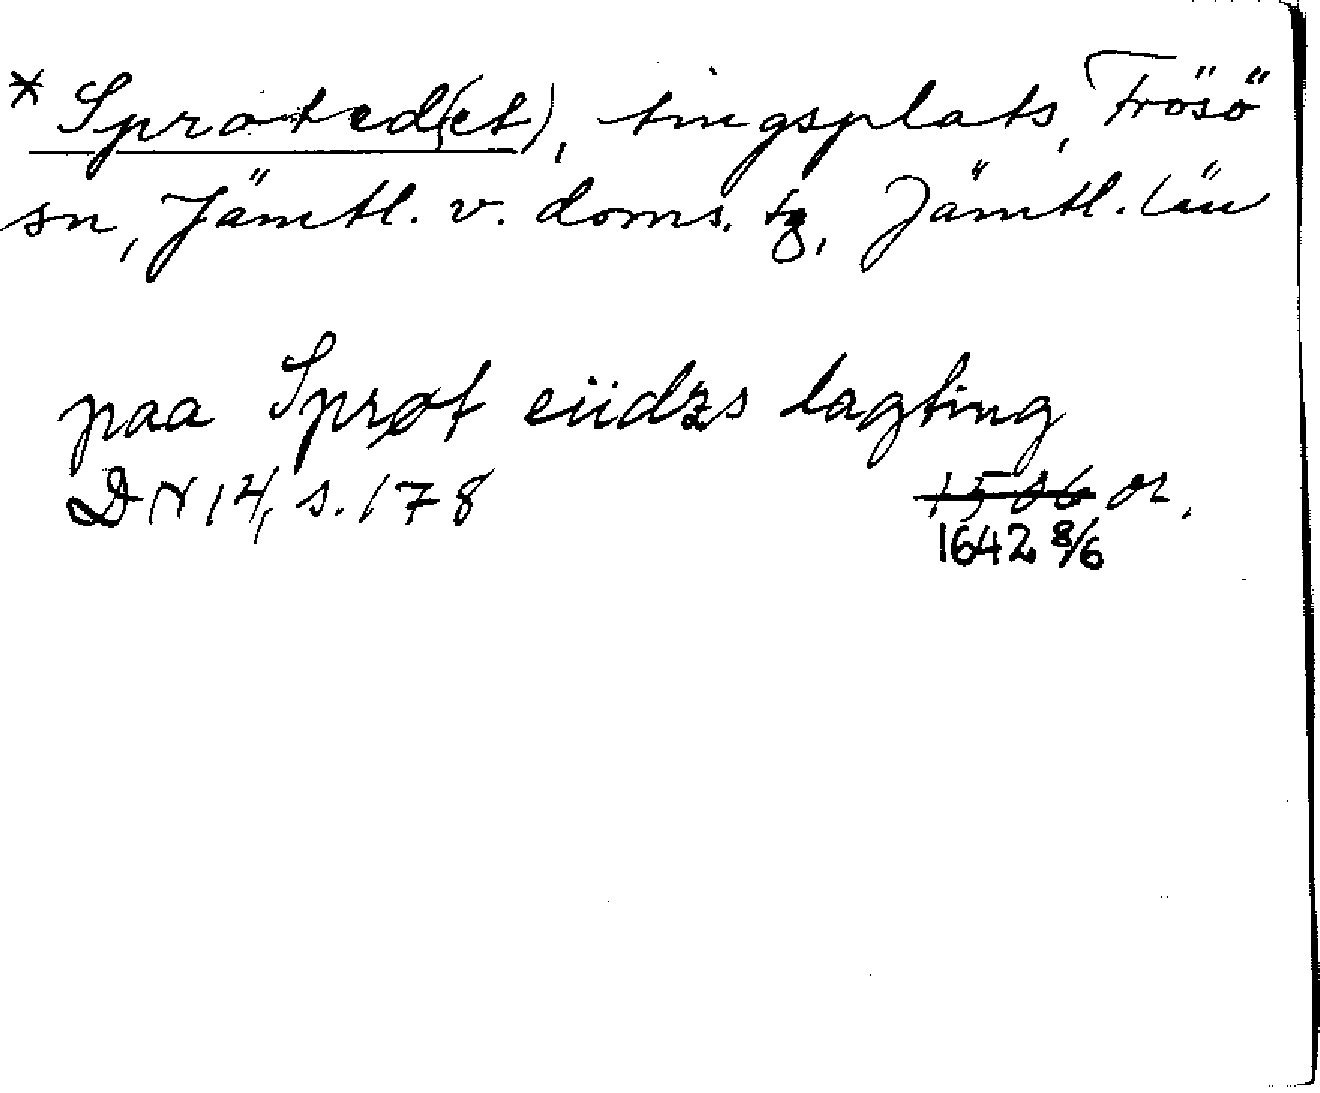 * Sproted(et), tingsplats, Frösö
sn, Jämtl. v. doms. tg, Jämtl. län
paa Sprøt eiidzs lagting
DN 14, s. 178 1586 or.
1642 8/6